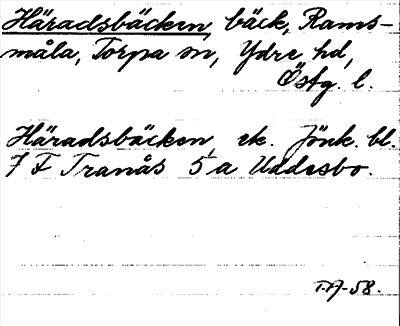 Häradsbäcken, bäck, Rams-
måla, Torpa sn, Ydre hd,
Östg. l.
Häradsbäcken, ek. Jönk. bl.
7 F Tranås 5 a Uddesbo.
T.A-58.